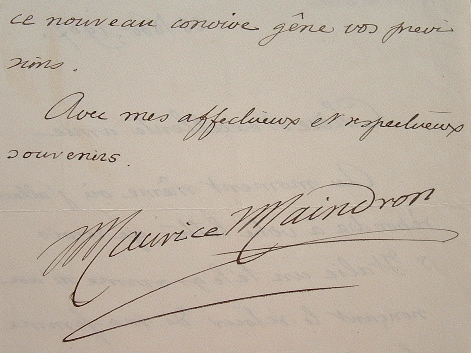 ce nouveau convive gêne vos previ
sions.
Avec mes affectueux et respectueux
souvenirs.
Maurice Maindron